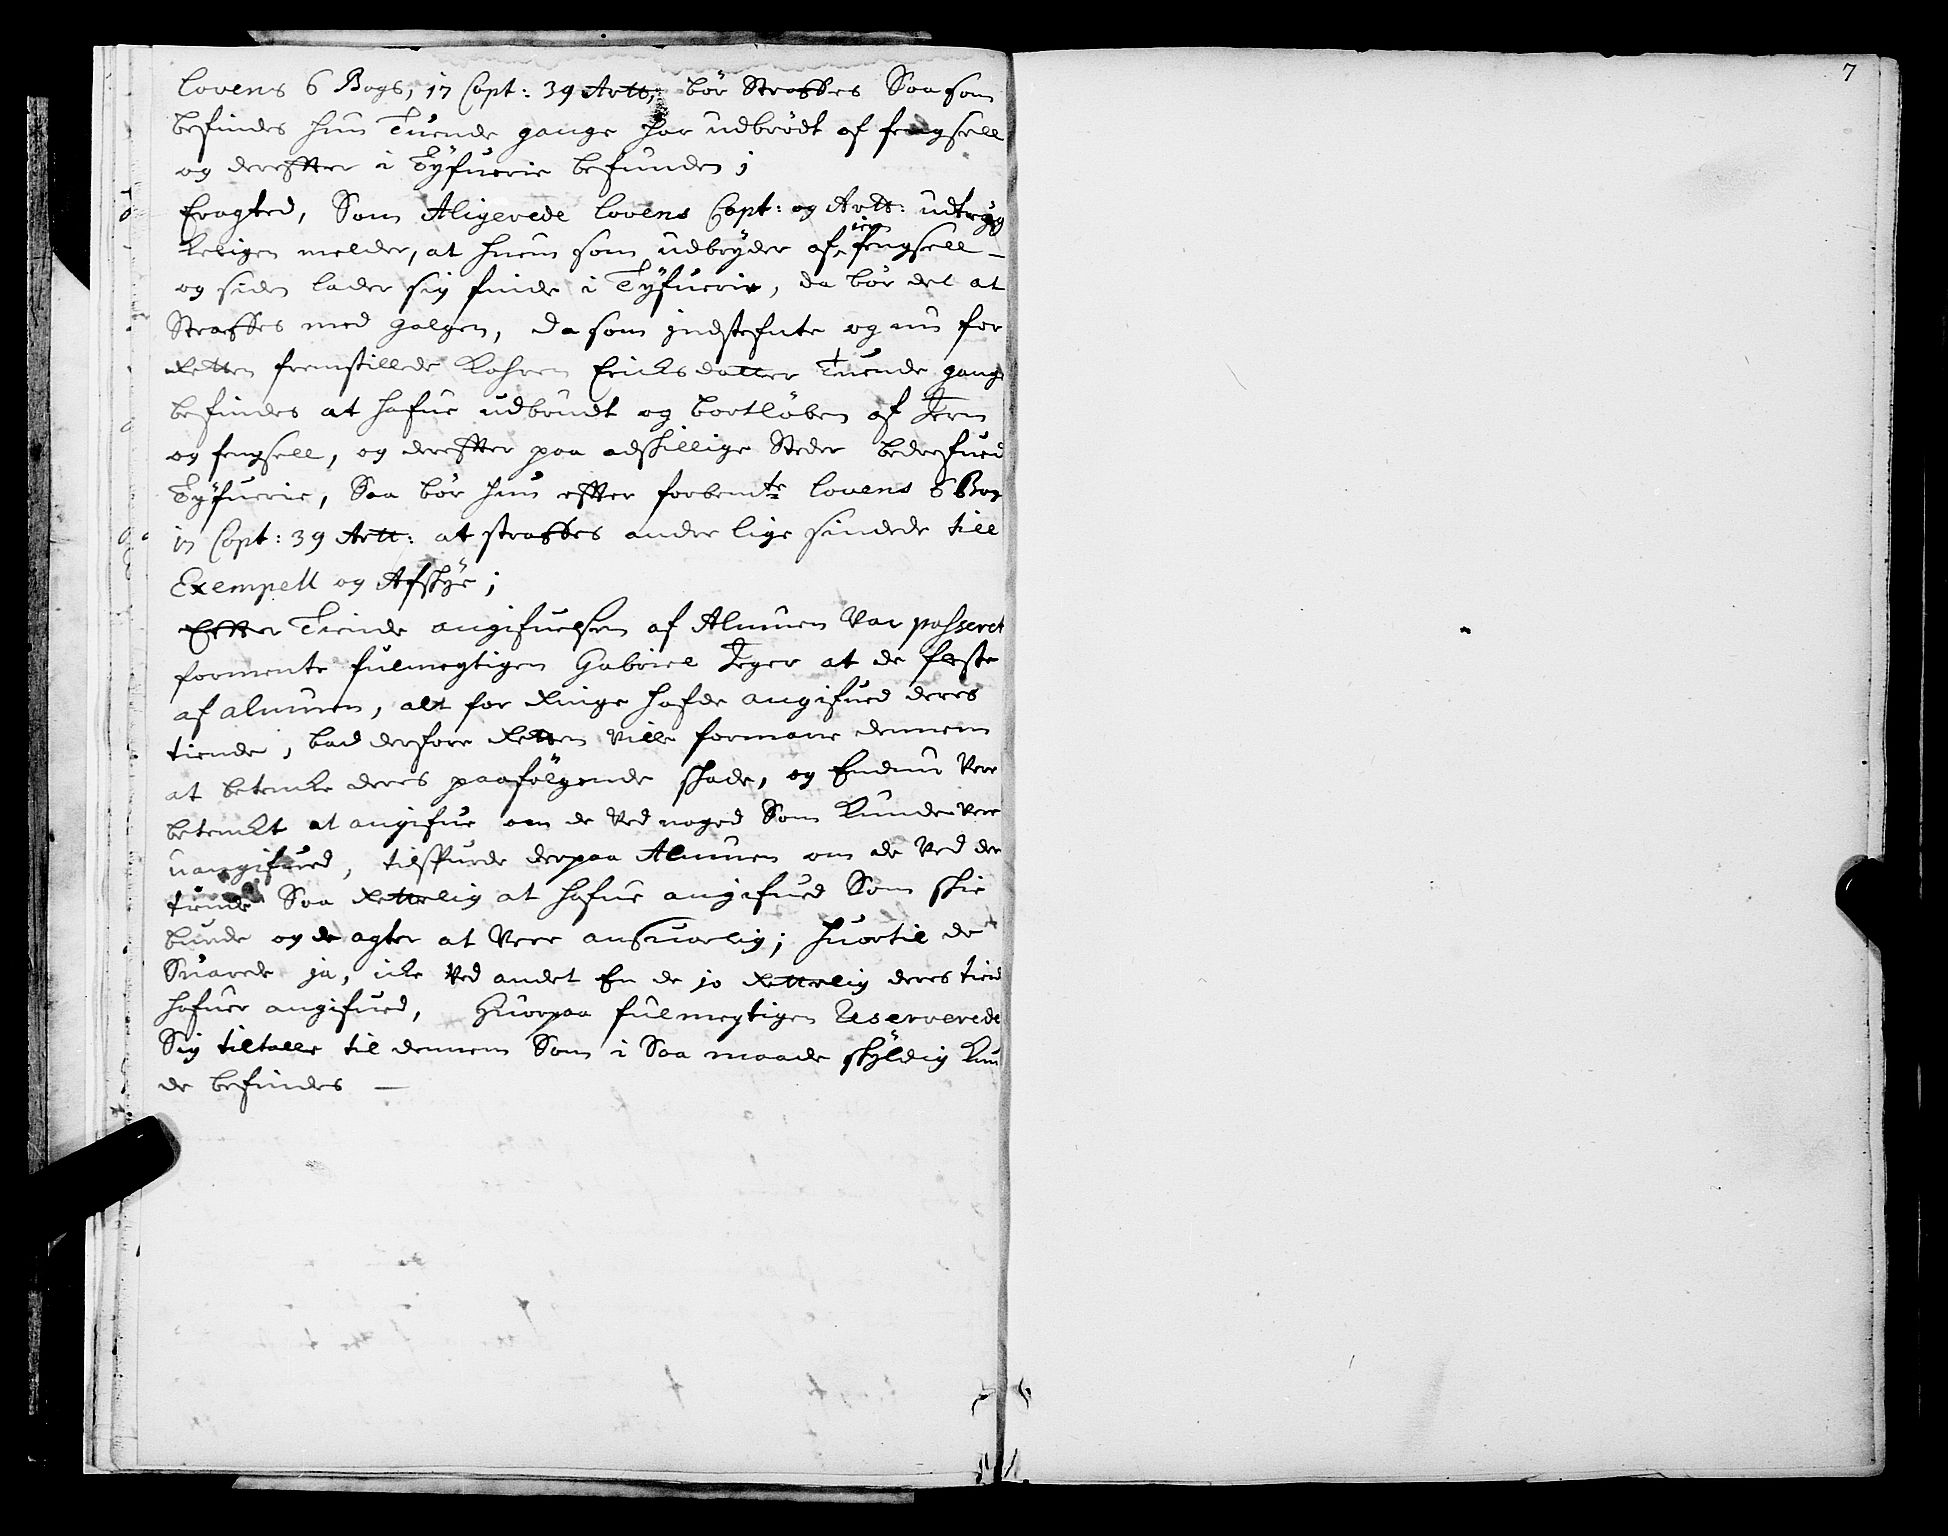 7
lovens 6 Bogs, 17 Capt: 39 Artt, bör Straffes Saasom
befindes hun Tuende gange har udbrödt af fengsell
og derefter i Tyfuerie befunden;
Eragted, Som Aligerede lovens Capt: og Artt: udtryg
keligen melder, at huem som udbryder af iern fengsell
og siden lader sig finde i Tyfuerie, da bör det at
Straffes med galgen, da som indstefnte og nu for
Retten fremstillede Kahren Ericksdatter Tuende gange
befindes at hafue udbrudt og bortlöben af Jern
og fengsell, og derefter paa adskillige Steder bedrefued
Tyfuerie, Saa bör hun efter forbemte lovens 6 Bog
17 Capt: 39 Artt: at straffes andre lige sindede till
Exempell og Afskye;
Efter Tiende angifuelsen af Almuen Var passeret
formente fulmegtigen Gabriel Jeger at de fleste
af almuen, alt for Ringe hafde angifued deres
tiende, bad derfore Retten Ville formane dennem
at betenke deres paafölgende skade, og Endnu Vere
betenkt at angifue om de Ved noged Som Kunde Vere
uangifued, tilspurde derpaa Almuen om de Ved der
tiende Saa Retterlig at hafue angifued Som skie
burde og de agter at Vere ansuarlig; huortil de
Suarede ja, icke Ved andet En de jo Retterlig deres tiend
hafuer angifued, Huorpaa fulmegtigen Reserverede
Sig tiltalle til dennem Som i Saa maade skyldig Kun
de befindes —